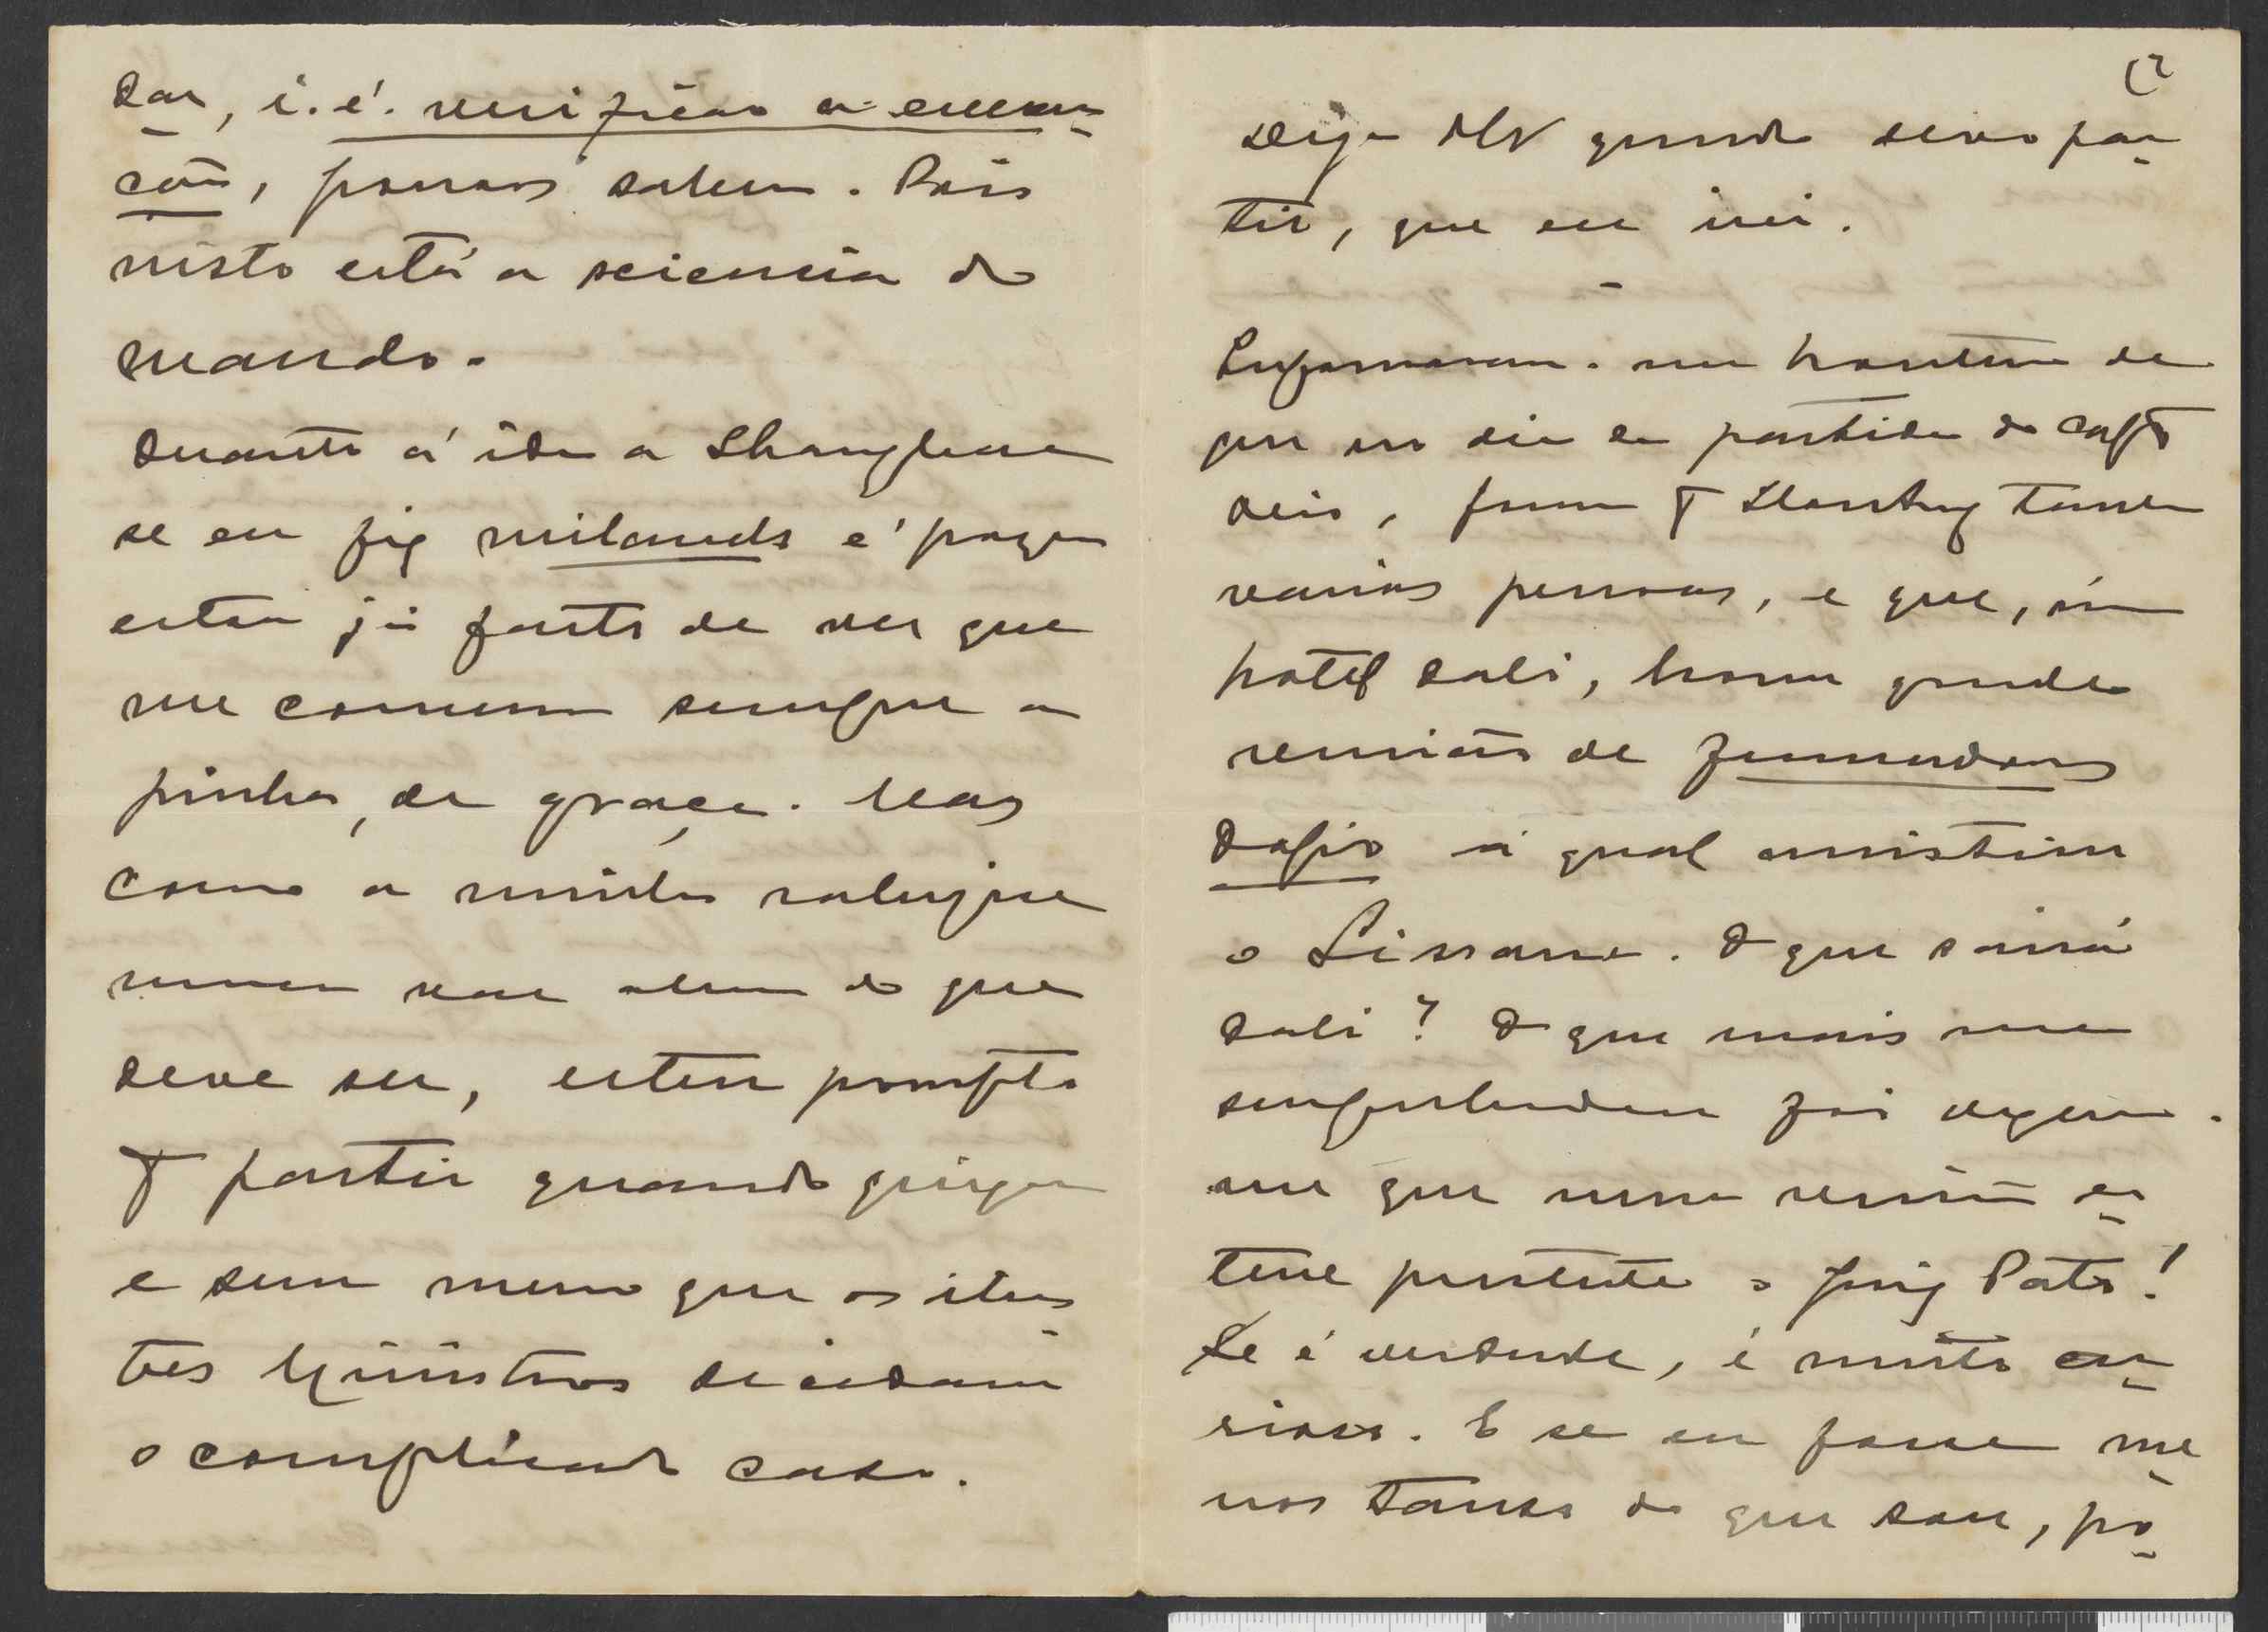 dar, i. é. verificar a execu-
ção, poucos sabem. Pois
nisto está a sciencia do
mando.
Quanto á ida a Shanghae
se eu fiz milando é porque
estou já farto de ver que
me comem sempre a
pinha, de graça. Mas
como a minha rabugice
nunca vae alem do que
deve ser, estou prompto
p partir quando queiram
e sem mesmo que os illus-
tres Ministros decidam
o complicado caso.
(2
Diga MV quando devo par-
tir, que eu irei.
–
Informaram-me hontem de
que no dia da partida do caft
Reis, foram p Shantung tambem
varias pessoas, e que, no
hotel dali, houve grande
reunião de
á qual assistiu
o Lissane. O que sairá
dali? O que mais me
surprehendeu foi dizerem-
me que nessa reunião es-
teve presente o Juiz Pato!
Se é verdade, é muito cu-
rioso. E se eu fosse me-
nos tanso do que sou, po-